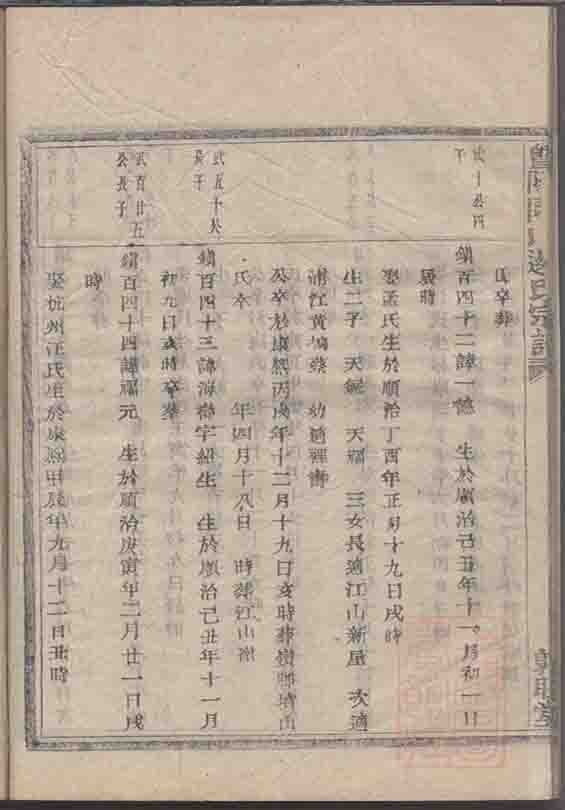 氏卒葬
廿十公四
子
鎮百四十二諱一德 生於順治己丑年十一月初一日
辰時
娶孟氏生於順治丁酉年正月十九日戌時
生二子 天 天福 三女長適江山新屋 次適
浦江黃 蔡 幼適
公卒於康熙丙戌年十二月十九日亥時葬 山
氏卒 年四月十八日 時葬江山
武五十八
長子
鎮百四十三諱海 字紹生 生於順治己丑年十一月
初九日 時卒葬
武百廿五
公長子
鎮百四十四諱福元 生於順治庚寅年二月廿一日戌
時
娶杭州汪氏生於康熙甲辰年九月十二日丑時
氏宗譜
敦睦堂